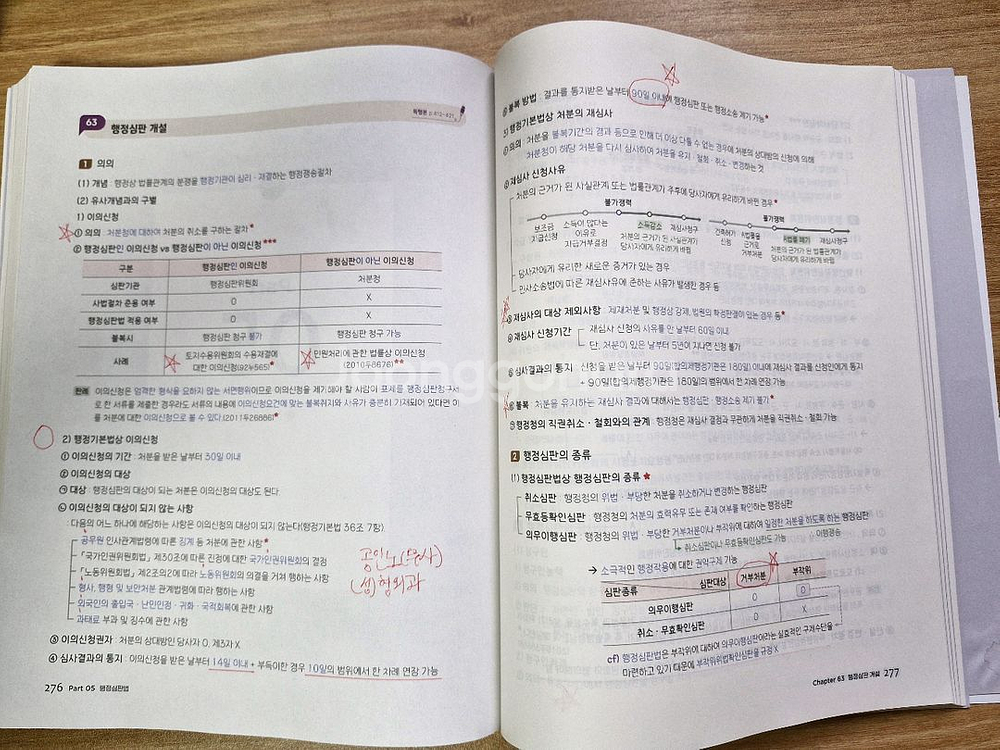 63 행정심판 개설
1 의의
(1) 개념 : 행정상 법률관계의 분쟁을 행정기관이 심리 · 재결하는 행정쟁송절차
(2) 유사개념과의 구별
1) 이의신청
① 의의 : 처분청에 대하여 처분의 취소를 구하는 절차*
② 행정심판인 이의신청 vs 행정심판이 아닌 이의신청***
구분 행정심판인 이의신청 행정심판이 아닌 이의신청
심판기관 행정심판위원회 처분청
사법절차 준용 여부 O X
행정심판법 적용 여부 O X
불복시 행정심판 청구 불가 행정심판 청구 가능
사례 토지수용위원회의 수용재결에 민원처리에 관한 법률상 이의신청
대한 이의신청(92누565)* (2010두8676)**
판례 이의신청은 엄격한 형식을 요하지 않는 서면행위이므로 이의신청을 제기해야 할 사람이 표제를 행정심판청구서
로 한 서류를 제출한 경우라도 서류의 내용에 이의신청요건에 맞는 불복취지와 사유가 충분히 기재되어 있다면 이
를 처분에 대한 이의신청으로 볼 수 있다.(2011두26886)*
2) 행정기본법상 이의신청
① 이의신청의 기간 : 처분을 받은 날부터 30일 이내
② 이의신청의 대상
㉠ 대상 : 행정심판의 대상이 되는 처분은 이의신청의 대상도 된다
㉡ 이의신청의 대상이 되지 않는 사항
: 다음의 어느 하나에 해당하는 사항은 이의신청의 대상이 되지 않는다(행정기본법 36조 7항).
공무원 인사관계법령에 따른 징계 등 처분에 관한 사항*
「국가인권위원회법」 제30조에 따른 진정에 대한 국가인권위원회의 결정
「노동위원회법」 제2조의2에 따라 노동위원회의 의결을 거쳐 행하는 사항
형사, 행형 및 보안처분 관계법령에 따라 행하는 사항
외국인의 출입국 · 난민인정 · 귀화 · 국적회복에 관한 사항
과태료 부과 및 징수에 관한 사항
공인노(무사)
(성)형외과
③ 이의신청권자 : 처분의 상대방인 당사자 O, 제3자 X
④ 심사결과의 통지 : 이의신청을 받은 날부터 14일 이내 + 부득이한 경우 10일의 범위에서 한 차례 연장 가능
276 Part 05 행정심판법
⑤ 불복 방법 : 결과를 통지받은 날부터 90일 이내에 행정심판 또는 행정소송 제기 가능*
3) 행정기본법상 처분의 재심사
① 의의 : 처분을 불복기간의 경과 등으로 인해 더 이상 다툴 수 없는 경우에 처분의 상대방의 신청에 의해
처분청이 해당 처분을 다시 심사하여 처분을 유지 · 철회 · 취소 · 변경하는 것
② 재심사 신청사유
처분의 근거가 된 사실관계 또는 법률관계가 추후에 당사자에게 유리하게 바뀐 경우*
불가쟁력 불가쟁력
보조금 소득이 많다는 소득감소 재심사청구 건축허가 A법률을 A법률 폐기 재심사청구
지급신청 이유로 처분의 근거가 된 사실관계가 신청 근거로 처분의 근거가 된 법률관계가
지급거부결정 당사자에게 유리하게 바뀜 거부처분 당사자에게 유리하게 바뀜
당사자에게 유리한 새로운 증거가 있는 경우
민사소송법에 따른 재심사유에 준하는 사유가 발생한 경우 등
③ 재심사의 대상 제외사항 : 제재처분 및 행정상 강제, 법원의 확정판결이 있는 경우 등*
④ 재심사 신청기간 재심사 신청의 사유를 안 날부터 60일 이내
단, 처분이 있은 날부터 5년이 지나면 신청 불가
⑤ 심사결과의 통지 : 신청을 받은 날부터 90일(합의제행정기관은 180일) 이내에 재심사 결과를 신청인에게 통지
+ 90일(합의제행정기관은 180일)의 범위에서 한 차례 연장 가능
⑥ 불복 : 처분을 유지하는 재심사 결과에 대해서는 행정심판 · 행정소송 제기 불가*
⑦ 행정청의 직권취소 · 철회와의 관계 : 행정청은 재심사 결정과 무관하게 처분을 직권취소 · 철회 가능
2 행정심판의 종류
(1) 행정심판법상 행정심판의 종류 ★
취소심판 : 행정청의 위법 · 부당한 처분을 취소하거나 변경하는 행정심판
무효등확인심판 : 행정청의 처분의 효력유무 또는 존재 여부를 확인하는 행정심판
의무이행심판 : 행정청의 위법 · 부당한 거부처분이나 부작위에 대하여 일정한 처분을 하도록 하는 행정심판
취소심판이나 무효등확인심판도 가능 이행쟁송
→ 소극적인 행정작용에 대한 권익구제 가능
심판종류 심판대상 거부처분 부작위
의무이행심판 O O
취소 · 무효확인심판 O X
cf) 행정심판법은 부작위에 대하여 의무이행심판이라는 실효적인 구제수단을
마련하고 있기 때문에 부작위위법확인심판을 규정 X
Chapter 63 행정심판 개설 277